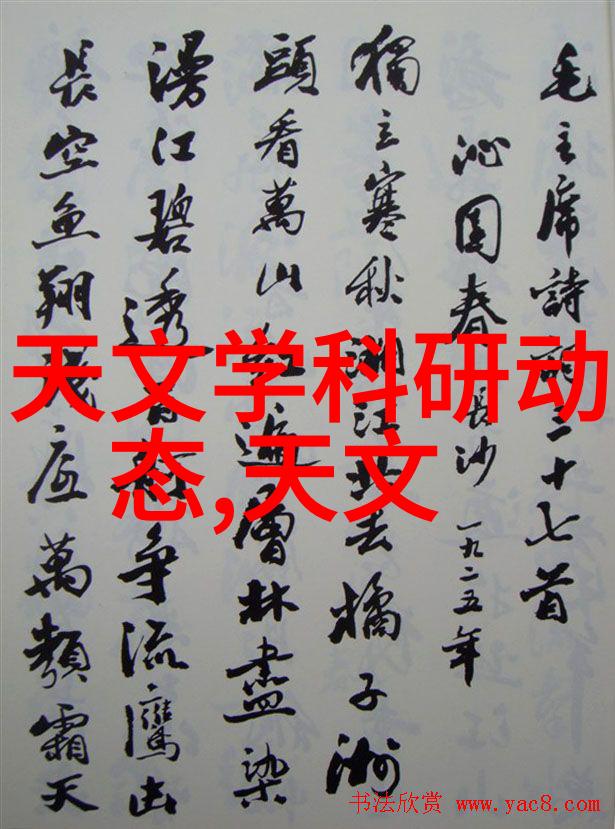 毛主席詩詞三十七首
沁園春 長沙 一九二五年
獨立寒秋湘江北去橘子洲
頭看萬山紅遍層林盡染
漫江碧透百舸争流鷹击
長空魚翔浅底萬類霜天
天文学科研动
态,天文
书法欣赏 www.yac8.com